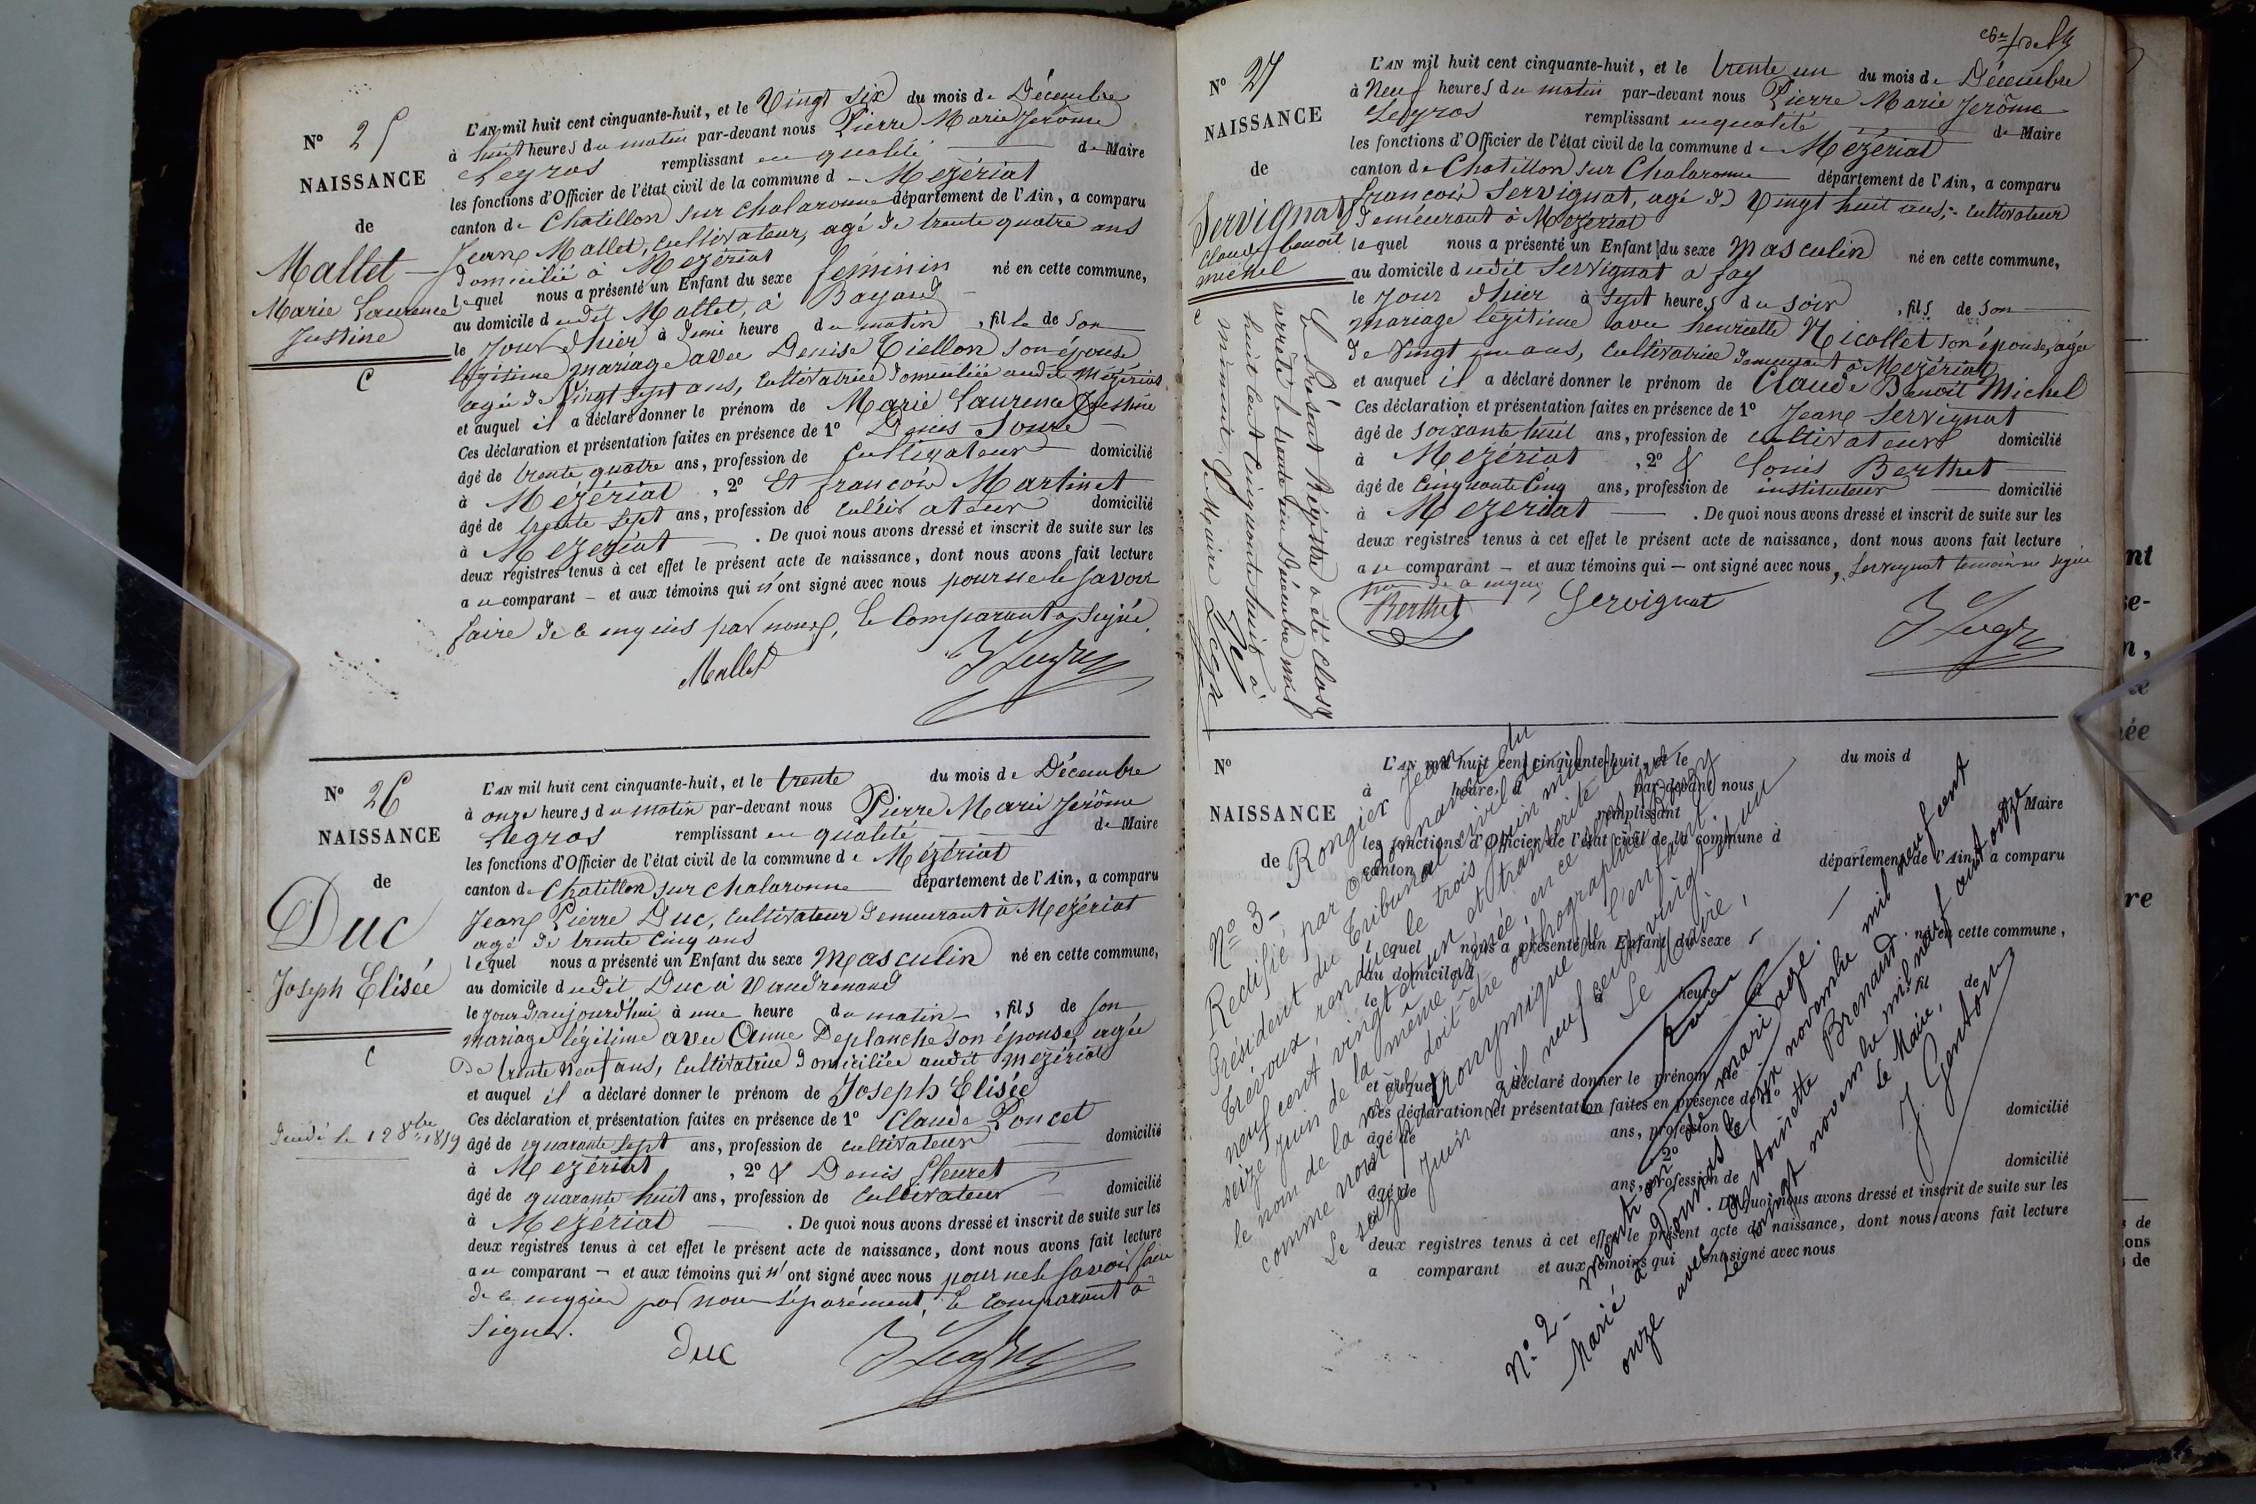 N° 25
NAISSANCE
de
Mallet
Marie Laurence
Justine
C
L'AN mil huit cent cinquante-huit, et le Vingt six du mois de Décembre
à huit heures du matin par-devant nous Pierre Marie Jerôme
Legros remplissant en qualité de Maire
les fonctions d'Officier de l'état civil de la commune d - Mézériat
canton de Chatillon sur Chalaronne département de l'Ain, a comparu
Jean Mallet, cultivateur, agé de trente quatre ans
domicilié à Mezériat
lequel nous a présenté un Enfant du sexe féminin né en cette commune,
au domicile dudit Mallet, à Bayard
le jour d'hier à demi heure du matin, fille de son
légitime mariage avec Denise Tiellon son épouse
agée de Vingt sept ans, cultivatrice domiciliée audit Mézériat
et auquel il a déclaré donner le prénom de Marie Laurence Justine
Ces déclaration et présentation faites en présence de 1° Denis
âgé de trente quatre ans, profession de cultivateur domicilié
à Mézériat, 2° Et françois Martinet
âgé de trente sept ans, profession de cultivateur domicilié
à Mezeriat. De quoi nous avons dressé et inscrit de suite sur les
deux registres tenus à cet effet le présent acte de naissance, dont nous avons fait lecture
au comparant - et aux témoins qui n'ont signé avec nous pour ne le savoir
faire de ce enquis par nous, le Comparant a signé.
Mallet
N° 26
NAISSANCE
de
Duc
Joseph Elisée
C
L'AN mil huit cent cinquante-huit, et le trente du mois de Décembre
à onze heures du matin par-devant nous Pierre Marie Jerôme
Legros remplissant en qualité de Maire
les fonctions d'Officier de l'état civil de la commune de Mézériat
canton de Chatillon sur Chalaronne département de l'Ain, a comparu
Jean Pierre Duc, cultivateur demeurant à Mezériat
agé de trente cinq ans
lequel nous a présenté un Enfant du sexe masculin né en cette commune,
au domicile dudit Duc à Vandrenand
le jour d'aujourd'hui à une heure du matin, fils de son
mariage légitime avec Anne Deplanche son épouse, agée
De trente neuf ans, cultivatrice domiciliée audit Mezériat
et auquel il a déclaré donner le prénom de Joseph Elisée
Ces déclaration et présentation faites en présence de 1° Claude Poncet
âgé de quarante sept ans, profession de cultivateur domicilié
à Mezériat, 2° & Denis Fleuret
âgé de quarante huit ans, profession de cultivateur domicilié
à Mezériat. De quoi nous avons dressé et inscrit de suite sur les
deux registres tenus à cet effet le présent acte de naissance, dont nous avons fait lecture
au comparant - et aux témoins qui n'ont signé avec nous pour ne le savoir faire
de ce enquis par nous séparément, le comparant a
signé.
Duc
N° 27
NAISSANCE
de
Servignat
Claude benoit
michel
L'AN mil huit cent cinquante-huit, et le trente un du mois de Décembre
à Neuf heures du matin par-devant nous Pierre Marie Jerôme
Legros remplissant en qualité de Maire
les fonctions d'Officier de l'état civil de la commune de Mézériat
canton de Chatillon sur Chalaronne département de l'Ain, a comparu
françois Servignat, agé de Vingt huit ans, cultivateur
demeurant à Mezériat
lequel nous a présenté un Enfant du sexe masculin né en cette commune,
au domicile dudit Servignat a fay
le jour d'hier à sept heures du soir, fils de son
mariage légitime avec henriette Nicollet son épouse, agée
de Vingt un ans, cultivatrice demeurant à Mezériat
et auquel il a déclaré donner le prénom de Claude Benoit Michel
Ces déclaration et présentation faites en présence de 1° Jean Servignat
âgé de soixante huit ans, profession de cultivateur domicilié
à Mezériat, 2° & Louis Berthet
âgé de Cinquante Cinq ans, profession de instituteur domicilié
à Mezeriat. De quoi nous avons dressé et inscrit de suite sur les
deux registres tenus à cet effet le présent acte de naissance, dont nous avons fait lecture
au comparant - et aux témoins qui - ont signé avec nous, Servignat temoin ne signe
Berthet Servignat
Le Présent Régistre a été clos &
arrêté le trente un Décembre mil
huit cent Cinquante huit à
minuit
Le Maire
N°
NAISSANCE
de
L'AN mil huit cent cinquante-huit, et le du mois d
à heure d par-devant nous
remplissant de Maire
les fonctions d'Officier de l'état civil de la commune d
canton d département de l'Ain, a comparu
lequel nous a présenté un Enfant du sexe né en cette commune,
au domicile d
le à heure d, fil de
et auquel a déclaré donner le prénom de
Ces déclaration et présentation faites en présence de 1°
âgé de ans, profession de domicilié
à, 2°
âgé de ans, profession de domicilié
à. De quoi nous avons dressé et inscrit de suite sur les
deux registres tenus à cet effet le présent acte de naissance, dont nous avons fait lecture
a comparant et aux témoins qui ont signé avec nous
N° 3 - Rongier Jean
Rectifié par ordonnance du
Président du Tribunal civil de
Trévoux, rendue le trois juin mil
neuf cent vingt et un et transcrite le
seize juin de la même année en ce sens que
le nom de la mère doit être orthographié Bugy
comme nom patronymique de l'enfant
Le seize Juin mil neuf cent vingt et un
Le Maire,
N° 2 - Mention de mariage. -
Marié à Pomas le six novembre mil neuf cent
onze avec Antoinette Brenaud.
Le vingt novembre mil neuf cent onze
Le Maire,
J. Genton